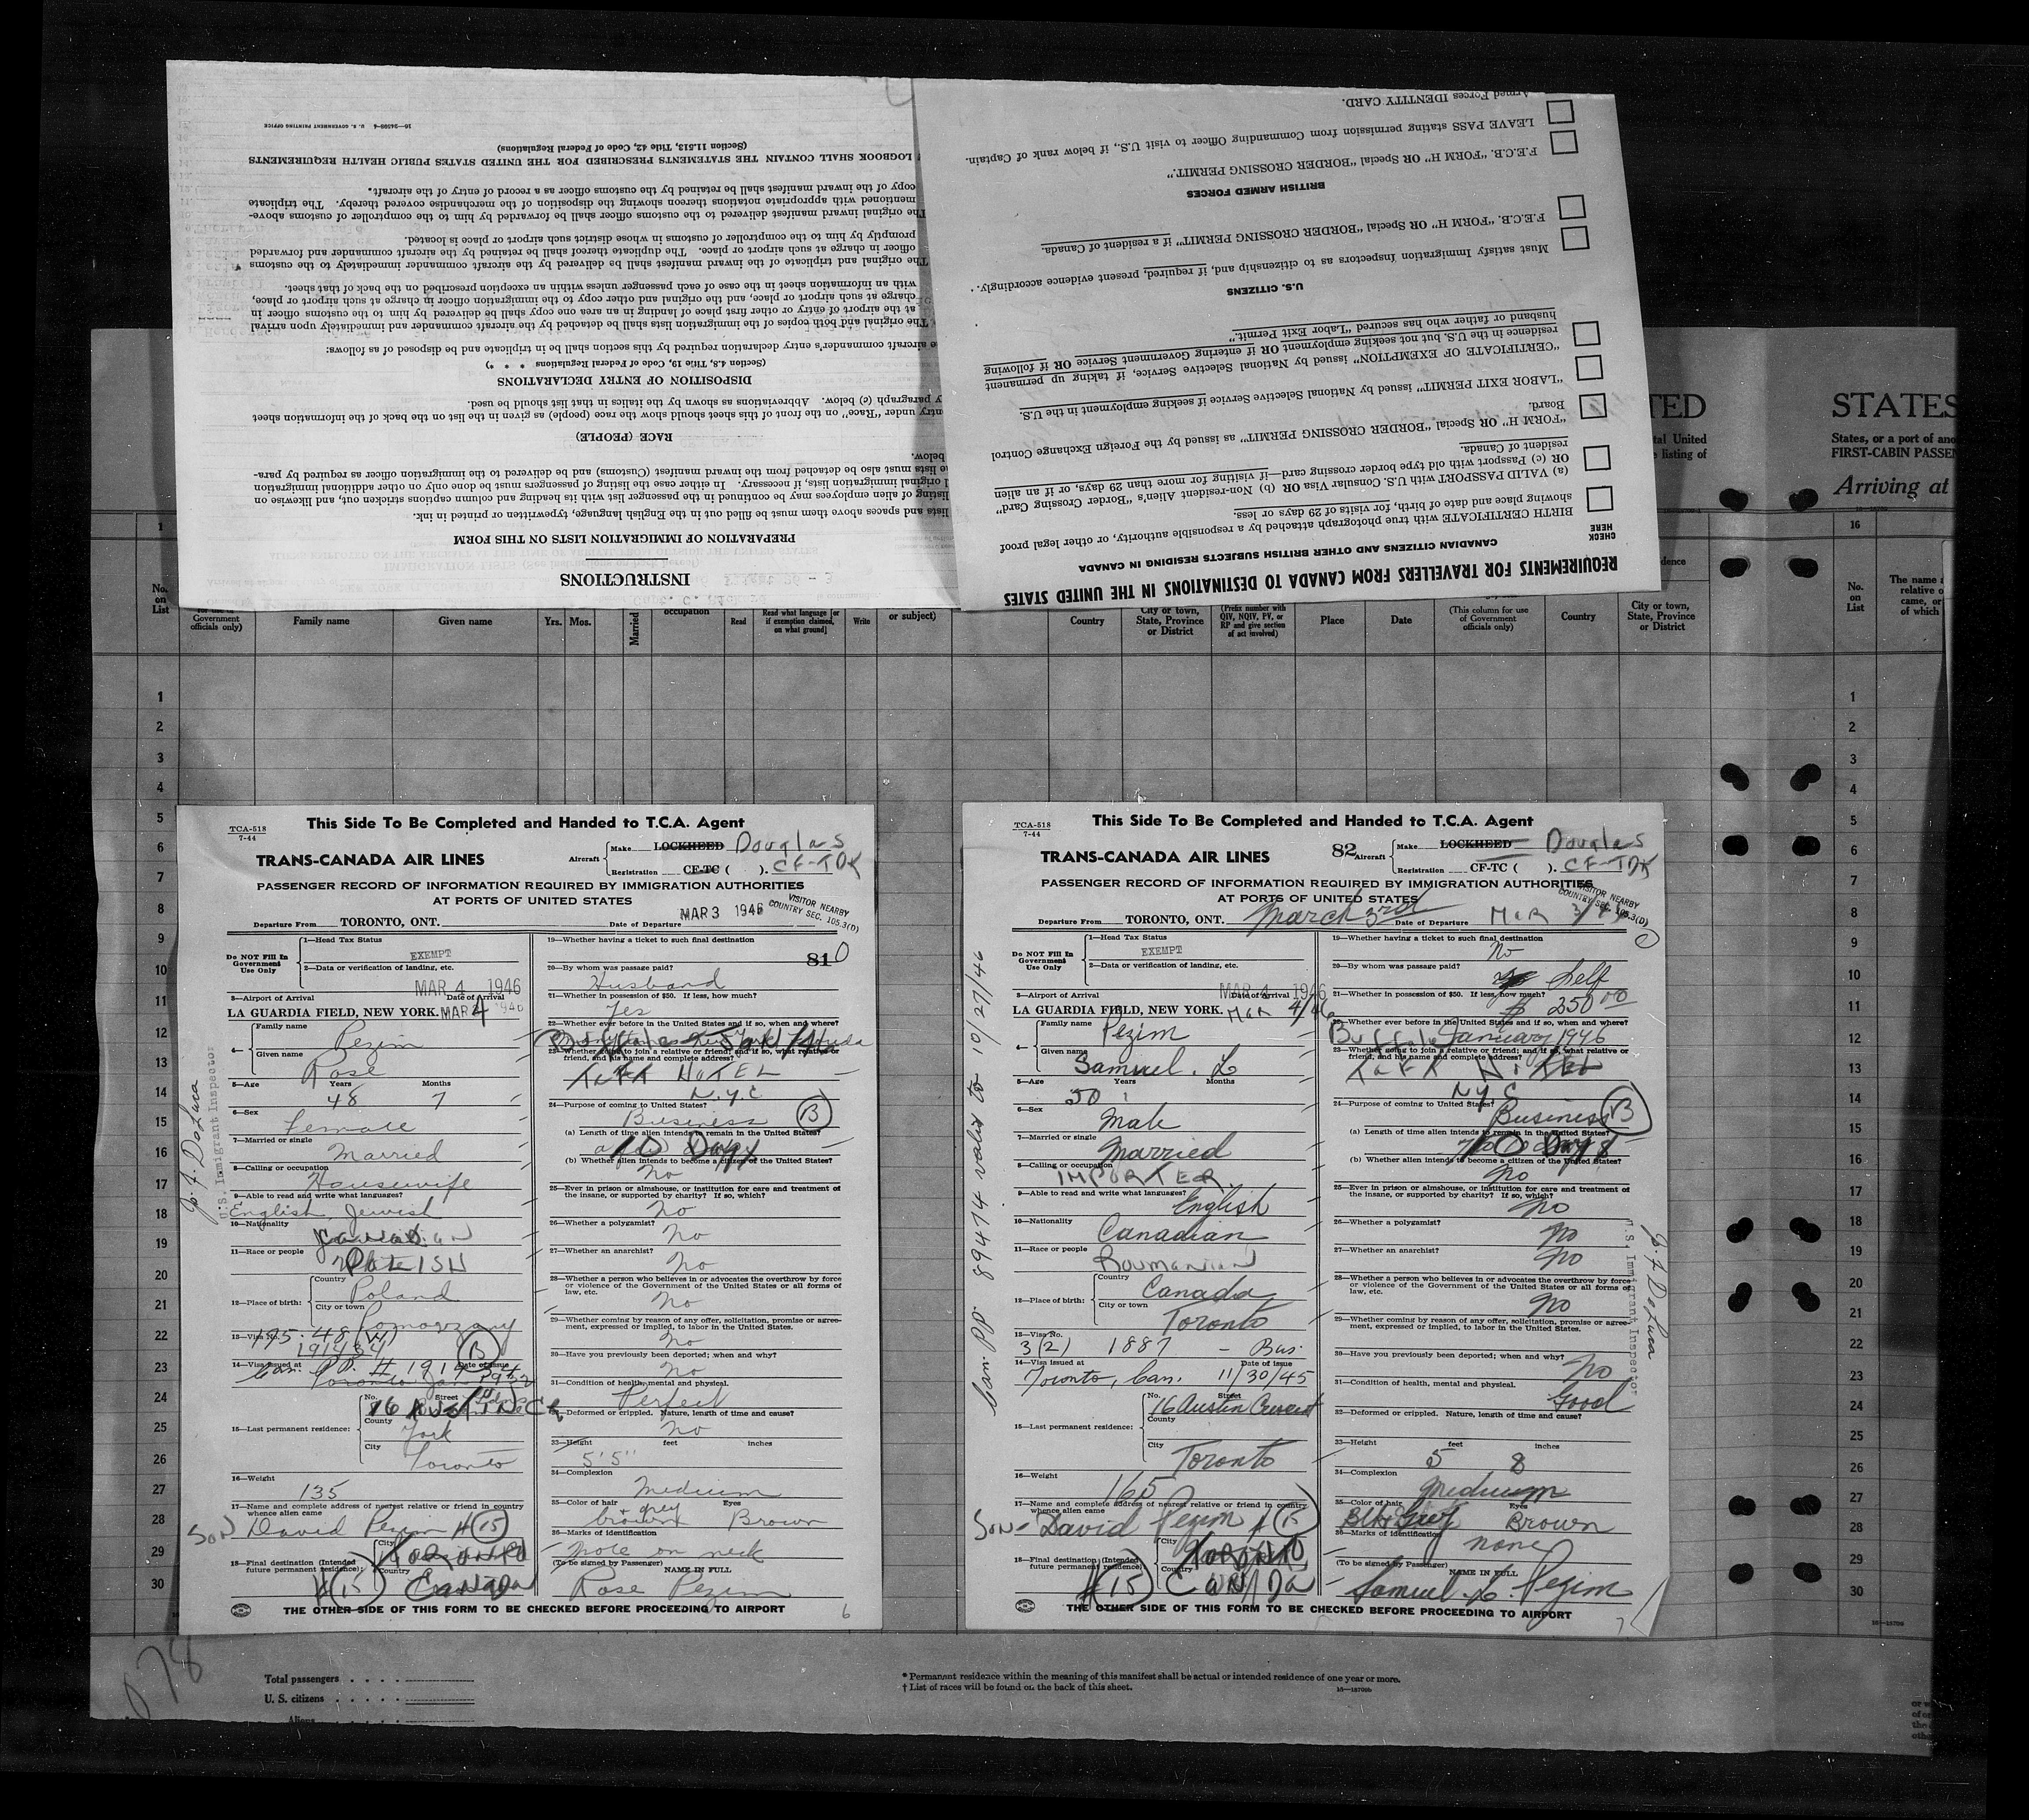 16—24599-4 U. S. GOVERNMENT PRINTING OFFICE
(Section 11.513, Title 42, Code of Federal Regulations)
LOGBOOK SHALL CONTAIN THE STATEMENTS PRESCRIBED FOR THE UNITED STATES PUBLIC HEALTH REQUIREMENTS
copy of the inward manifest shall be retained by the customs officer as a record of entry of the aircraft.
mentioned with appropriate notations thereon showing the disposition of the merchandise covered thereby. The triplicate
The original inward manifest delivered to the customs officer shall be forwarded by him to the comptroller of customs above-
promptly by him to the comptroller of customs in whose district such airport or place is located.
officer in charge at such airport or place. The duplicate thereof shall be retained by the aircraft commander and forwarded
The original and triplicate of the inward manifest shall be delivered by the aircraft commander immediately to the customs
with an information sheet in the case of each passenger unless within an exception prescribed on the back of that sheet.
charge at such airport or place, and the original and other copy to the immigration officer in charge at such airport or place,
at the airport of entry or other first place of landing in an area one copy shall be delivered by him to the customs officer in
The original and both copies of the immigration lists shall be detached by the aircraft commander and immediately upon arrival
aircraft commander's entry declaration required by this section shall be in triplicate and be disposed of as follows:
(Section 4.8, Title 19, Code of Federal Regulations * * *)
DISPOSITION OF ENTRY DECLARATIONS
paragraph (c) below. Abbreviations as shown by the italics in that list should be used.
under "Race" on the front of this sheet should show the race (people) as given in the list on the back of the information sheet
RACE (PEOPLE)
below.
lists must also be detached from the inward manifest (Customs) and be delivered to the immigration officer as required by para-
original immigration lists, if necessary. In either case the listing of passengers must be done only on other additional immigration
listing of alien employees may be continued in the passenger list with its heading and column captions stricken out, and likewise on
lists and spaces above them must be filled out in the English language, typewritten or printed in ink.
PREPARATION OF IMMIGRATION LISTS ON THIS FORM
INSTRUCTIONS
Armed Forces IDENTITY CARD.
LEAVE PASS stating permission from Commanding Officer to visit U.S., if below rank of Captain.
F.E.C.B. "FORM H" OR Special "BORDER CROSSING PERMIT."
BRITISH ARMED FORCES
F.E.C.B. "FORM H" OR Special "BORDER CROSSING PERMIT" if a resident of Canada.
Must satisfy Immigration Inspectors as to citizenship and, if required, present evidence accordingly.
U.S. CITIZENS
husband or father who has secured "Labor Exit Permit."
residence in the U.S. but not seeking employment OR if entering Government Service OR if following
"CERTIFICATE OF EXEMPTION" issued by National Selective Service, if taking up permanent
"LABOR EXIT PERMIT" issued by National Selective Service if seeking employment in the U.S.
Board.
"FORM H" OR Special "BORDER CROSSING PERMIT" as issued by the Foreign Exchange Control
resident of Canada.
OR (c) Passport with old type border crossing card—if visiting for more than 29 days, or if an alien
(a) VALID PASSPORT with U.S. Consular Visa OR (b) Non-resident Alien's "Border Crossing Card"
showing place and date of birth, for visits of 29 days or less.
BIRTH CERTIFICATE with true photograph attached by a responsible authority, or other legal proof
CHECK HERE
CANADIAN CITIZENS AND OTHER BRITISH SUBJECTS RESIDING IN CANADA
REQUIREMENTS FOR TRAVELLERS FROM CANADA TO DESTINATIONS IN THE UNITED STATES
TED STATES
tal United States, or a port of
listing of FIRST-CABIN PASSEN
Arriving at
No. on List
Government officials only)
Family name
Given name
Yrs. Mos.
Married
occupation
Read
Read what language [or if exemption claimed, on what ground]
Write
or subject)
Country
City or town, State, Province or District
(Prefix number with QIV, NQIV, PV, or RP and give section of act involved)
Place
Date
(This column for use of Government officials only)
Country
City or town, State, Province or District
No. on List
TCA-518
7-44
This Side To Be Completed and Handed to T.C.A. Agent
TRANS-CANADA AIR LINES
Aircraft Make LOCKHEED Douglas
Registration CF-TC ( ). CF-TDK
PASSENGER RECORD OF INFORMATION REQUIRED BY IMMIGRATION AUTHORITIES
AT PORTS OF UNITED STATES
VISITOR NEARBY
COUNTRY SEC. 105.3(D)
Departure From TORONTO, ONT. Date of Departure MAR 3 1946
Do NOT Fill In
Government
Use Only
1—Head Tax Status
EXEMPT
2—Data or verification of landing, etc.
MAR 4 1946
3—Airport of Arrival Date of Arrival
LA GUARDIA FIELD, NEW YORK. MAR 4 1946
4— Family name Pezim
Given name Rose
5—Age Years Months
48 7
6—Sex Female
7—Married or single
Married
8—Calling or occupation
Housewife
9—Able to read and write what languages?
English, Jewish
10—Nationality
Canadian
11—Race or people
POLISH
12—Place of birth: Country Poland
City or town
13—Visa No. 195-48
191434
14—Visa issued at Date of issue
15—Last permanent residence: No. Street 16 AUSTIN CR
County York
City Toronto
16—Weight
135
17—Name and complete address of nearest relative or friend in country
whence alien came
SON David Pezim # (15)
18—Final destination (Intended
future permanent residence): City TORONTO
Country CANADA
#(15)
19—Whether having a ticket to such final destination
81 0
20—By whom was passage paid?
Husband
21—Whether in possession of $50. If less, how much?
Yes
22—Whether ever before in the United States and if so, when and where?
23—Whether going to join a relative or friend; and if so, what relative or
friend, and his name and complete address?
TAFT HOTEL
N.Y.C
24—Purpose of coming to United States?
Business (B)
(a) Length of time alien intends to remain in the United States?
10 Days
(b) Whether alien intends to become a citizen of the United States?
No
25—Ever in prison or almshouse, or institution for care and treatment of
the insane, or supported by charity? If so, which?
No
26—Whether a polygamist?
No
27—Whether an anarchist?
No
28—Whether a person who believes in or advocates the overthrow by force
or violence of the Government of the United States or all forms of
law, etc.
No
29—Whether coming by reason of any offer, solicitation, promise or agree-
ment, expressed or implied, to labor in the United States.
No
30—Have you previously been deported; when and why?
No
31—Condition of health, mental and physical.
Perfect
32—Deformed or crippled. Nature, length of time and cause?
No
33—Height feet inches
5'5"
34—Complexion
Medium
35—Color of hair Eyes
brown + grey Brown
36—Marks of identification
mole on neck
(To be signed by Passenger) NAME IN FULL
Rose Pezim
THE OTHER SIDE OF THIS FORM TO BE CHECKED BEFORE PROCEEDING TO AIRPORT
6
U.S. Immigrant Inspector
TCA-518
7-44
This Side To Be Completed and Handed to T.C.A. Agent
TRANS-CANADA AIR LINES
82 Aircraft Make LOCKHEED Douglas
Registration CF-TC ( ). CF-TDK
PASSENGER RECORD OF INFORMATION REQUIRED BY IMMIGRATION AUTHORITIES
AT PORTS OF UNITED STATES
VISITOR NEARBY
COUNTRY SEC. 105.3(D)
Departure From TORONTO, ONT. March 3rd Date of Departure MAR 3/
Do NOT Fill In
Government
Use Only
1—Head Tax Status
EXEMPT
2—Data or verification of landing, etc.
MAR 4 1946
3—Airport of Arrival Date of Arrival
LA GUARDIA FIELD, NEW YORK. MAR 4/46
4— Family name Pezim
Given name Samuel. L
5—Age Years Months
50
6—Sex
Male
7—Married or single
Married
8—Calling or occupation
IMPORTER
9—Able to read and write what languages?
English
10—Nationality
Canadian
11—Race or people
ROUMANIAN
12—Place of birth: Country Canada
City or town Toronto
13—Visa No.
3(2) 1887 - Bus.
14—Visa issued at Date of issue
Toronto, Can. 11/30/45
15—Last permanent residence: No. Street 16 Austin Crescent
County
City Toronto
16—Weight
165
17—Name and complete address of nearest relative or friend in country
whence alien came
SON- David Pezim # 15
18—Final destination (Intended
future permanent residence): City TORONTO
Country CANADA
# 15
19—Whether having a ticket to such final destination
No
20—By whom was passage paid?
Self
21—Whether in possession of $50. If less, how much?
$ 250 00
22—Whether ever before in the United States and if so, when and where?
Buffalo January 1946
23—Whether going to join a relative or friend; and if so, what relative or
friend, and his name and complete address?
TAFT HOTEL
NYC
24—Purpose of coming to United States?
Business (B)
(a) Length of time alien intends to remain in the United States?
10 Days
(b) Whether alien intends to become a citizen of the United States?
No
25—Ever in prison or almshouse, or institution for care and treatment of
the insane, or supported by charity? If so, which?
No
26—Whether a polygamist?
No
27—Whether an anarchist?
No
28—Whether a person who believes in or advocates the overthrow by force
or violence of the Government of the United States or all forms of
law, etc.
No
29—Whether coming by reason of any offer, solicitation, promise or agree-
ment, expressed or implied, to labor in the United States.
30—Have you previously been deported; when and why?
No
31—Condition of health, mental and physical.
Good
32—Deformed or crippled. Nature, length of time and cause?
33—Height feet inches
5 8
34—Complexion
Medium
35—Color of hair Eyes
Blk Grey Brown
36—Marks of identification
none
(To be signed by Passenger) NAME IN FULL
Samuel. L. Pezim
THE OTHER SIDE OF THIS FORM TO BE CHECKED BEFORE PROCEEDING TO AIRPORT
7
Can. PP. 89474 valid to 10/27/46
U.S. Immigrant Inspector
078
Total passengers
U. S. citizens
Aliens
* Permanent residence within the meaning of this manifest shall be actual or intended residence of one year or more.
† List of races will be found on the back of this sheet.